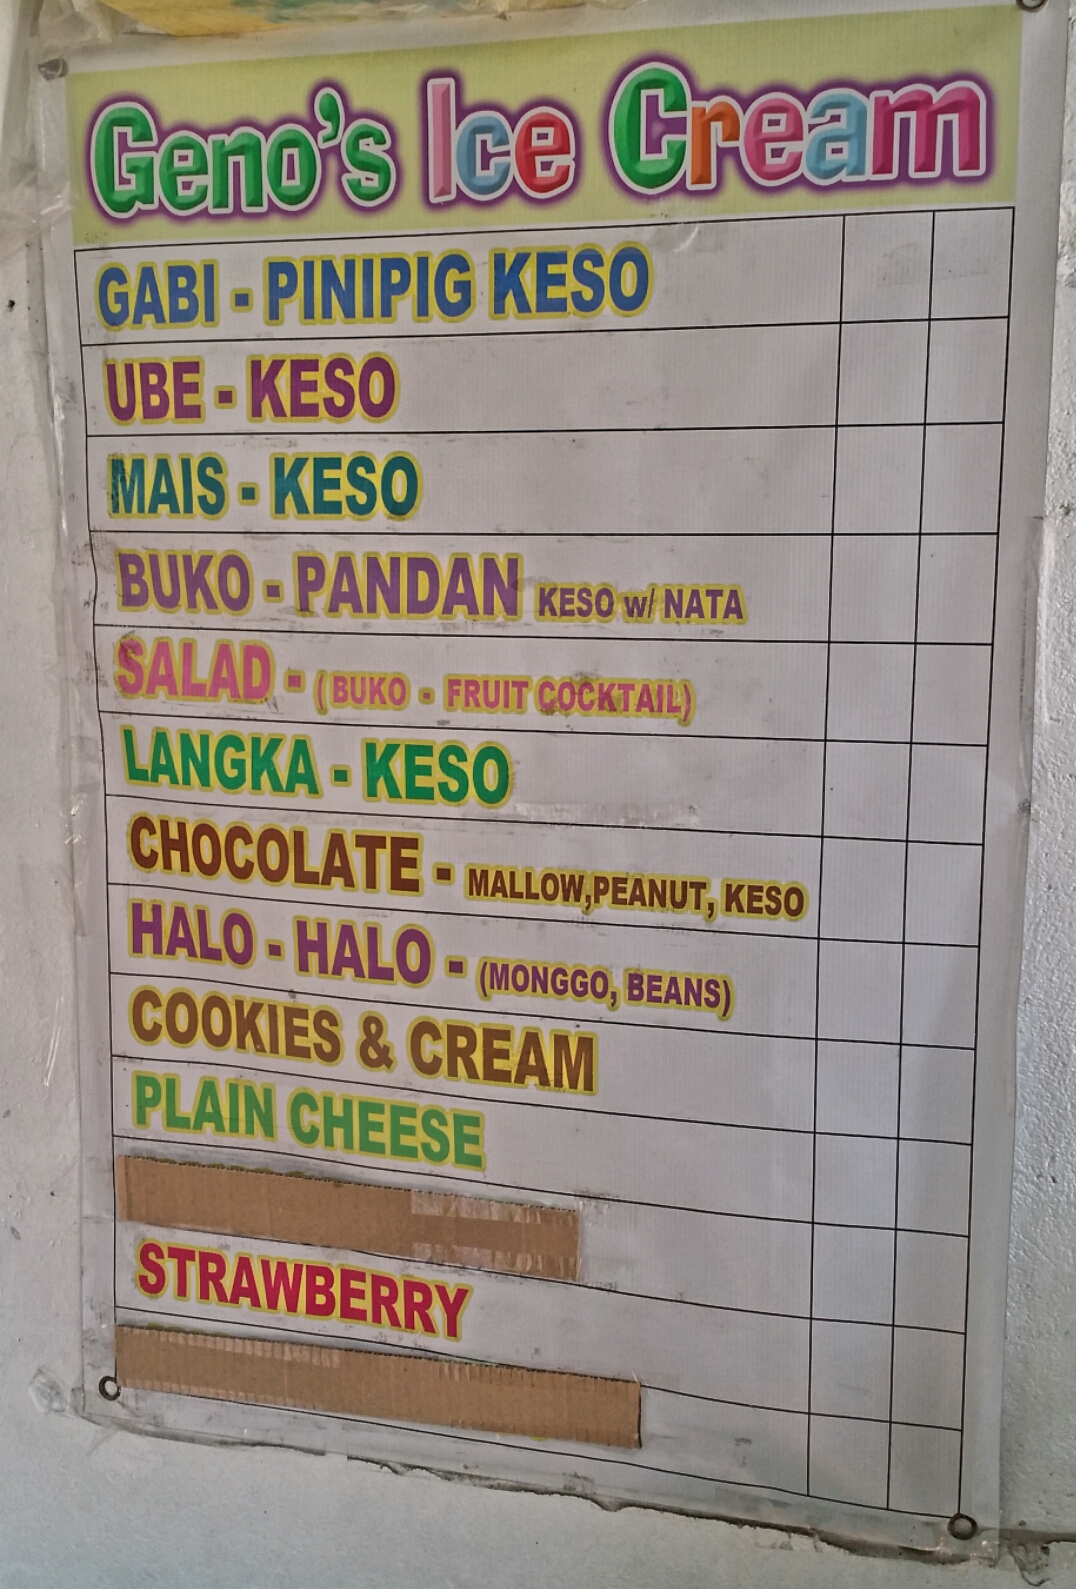 Geno's Ice Cream
GABI - PINIPIG KESO
UBE - KESO
MAIS - KESO
BUKO - PANDAN KESO w/ NATA
SALAD - (BUKO - FRUIT COCKTAIL)
LANGKA - KESO
CHOCOLATE - MALLOW,PEANUT, KESO
HALO - HALO - (MONGGO, BEANS)
COOKIES & CREAM
PLAIN CHEESE
STRAWBERRY